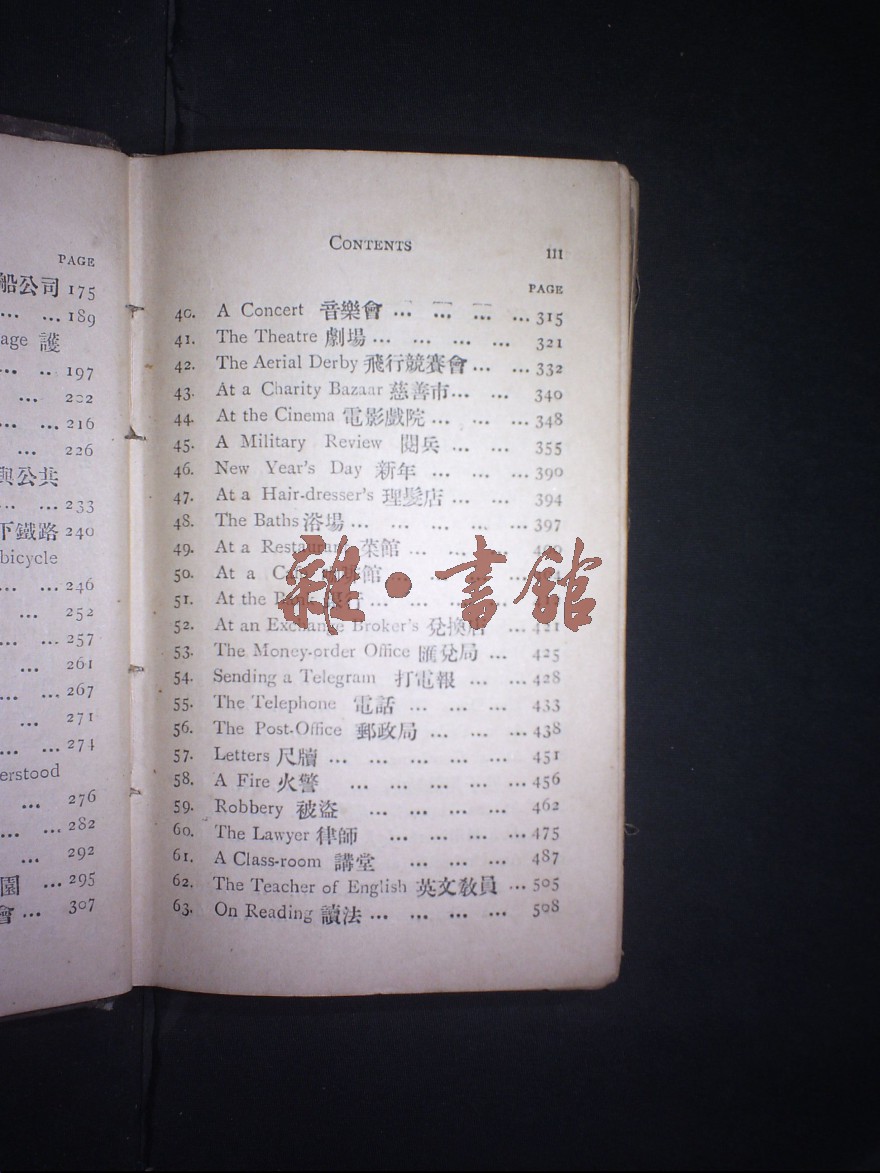 PAGE
船公司 175
... ... 189
age 護
... .. 197
... 202
... ... 216
... 226
與公共
... ... 233
下鐵路 240
bicycle
... ... 246
... 252
... ... 257
... 261
... ... 267
... 271
... ... 274
erstood
... 276
... ... 282
... 292
園 ... 295
會 ... 307
CONTENTS
III
PAGE
40. A Concert 音樂會 ... ... ... ... 315
41. The Theatre 劇場 ... ... ... ... 321
42. The Aerial Derby 飛行競賽會 ... ... 332
43. At a Charity Bazaar 慈善市 ... ... 340
44. At the Cinema 電影戲院 ... ... ... 348
45. A Military Review 閱兵 ... ... 355
46. New Year's Day 新年 ... ... ... 390
47. At a Hair-dresser's 理髮店 ... ... 394
48. The Baths 浴場 ... ... ... ... 397
49. At a Restaurant 菜館 ... ... ...
50. At a 館 ...
51. At the Bank 銀行 ... ... ...
52. At an Exchange Broker's 兌換店 ... 421
53. The Money-order Office 匯兌局 ... 425
54. Sending a Telegram 打電報 ... ... 428
55. The Telephone 電話 ... ... ... 433
56. The Post-Office 郵政局 ... ... ... 438
57. Letters 尺牘 ... ... ... ... ... 451
58. A Fire 火警 ... ... ... ... ... 456
59. Robbery 被盜 ... ... ... ... 462
60. The Lawyer 律師 ... ... ... ... 475
61. A Class-room 講堂 ... ... ... 487
62. The Teacher of English 英文敎員 ... 505
63. On Reading 讀法 ... ... ... ... 508
雜·書館